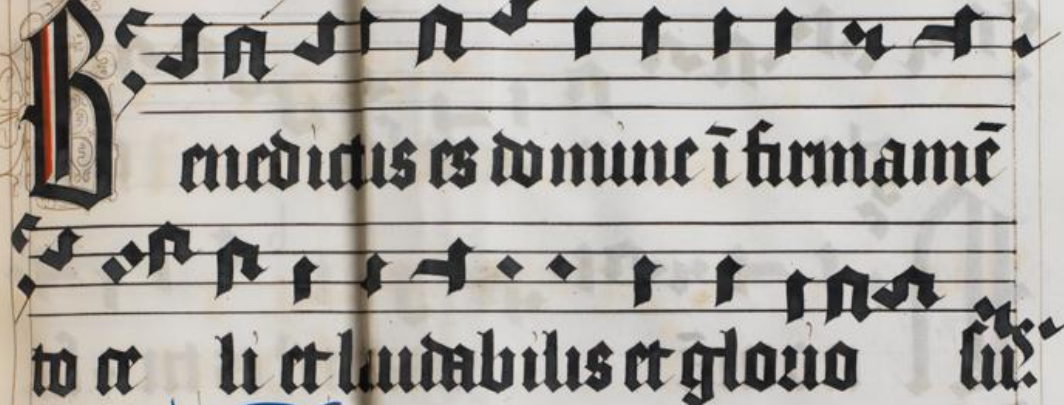 Benedictus es domine ī firmamē
to celi et laudabilis et glorio su᷒